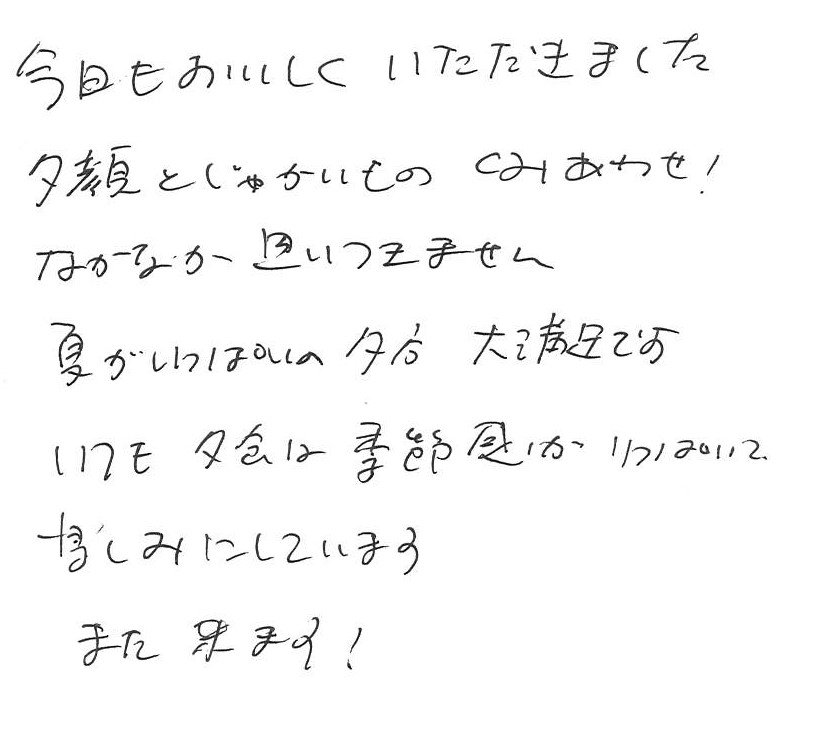 今日もおいしく いただきました
夕顔とじゃがいもの くみあわせ!
なかなか 思いつきません
夏がいっぱいの 夕食 大満足です
いつも 夕食は 季節感が いっぱいで
楽しみにしています
また 来ます!